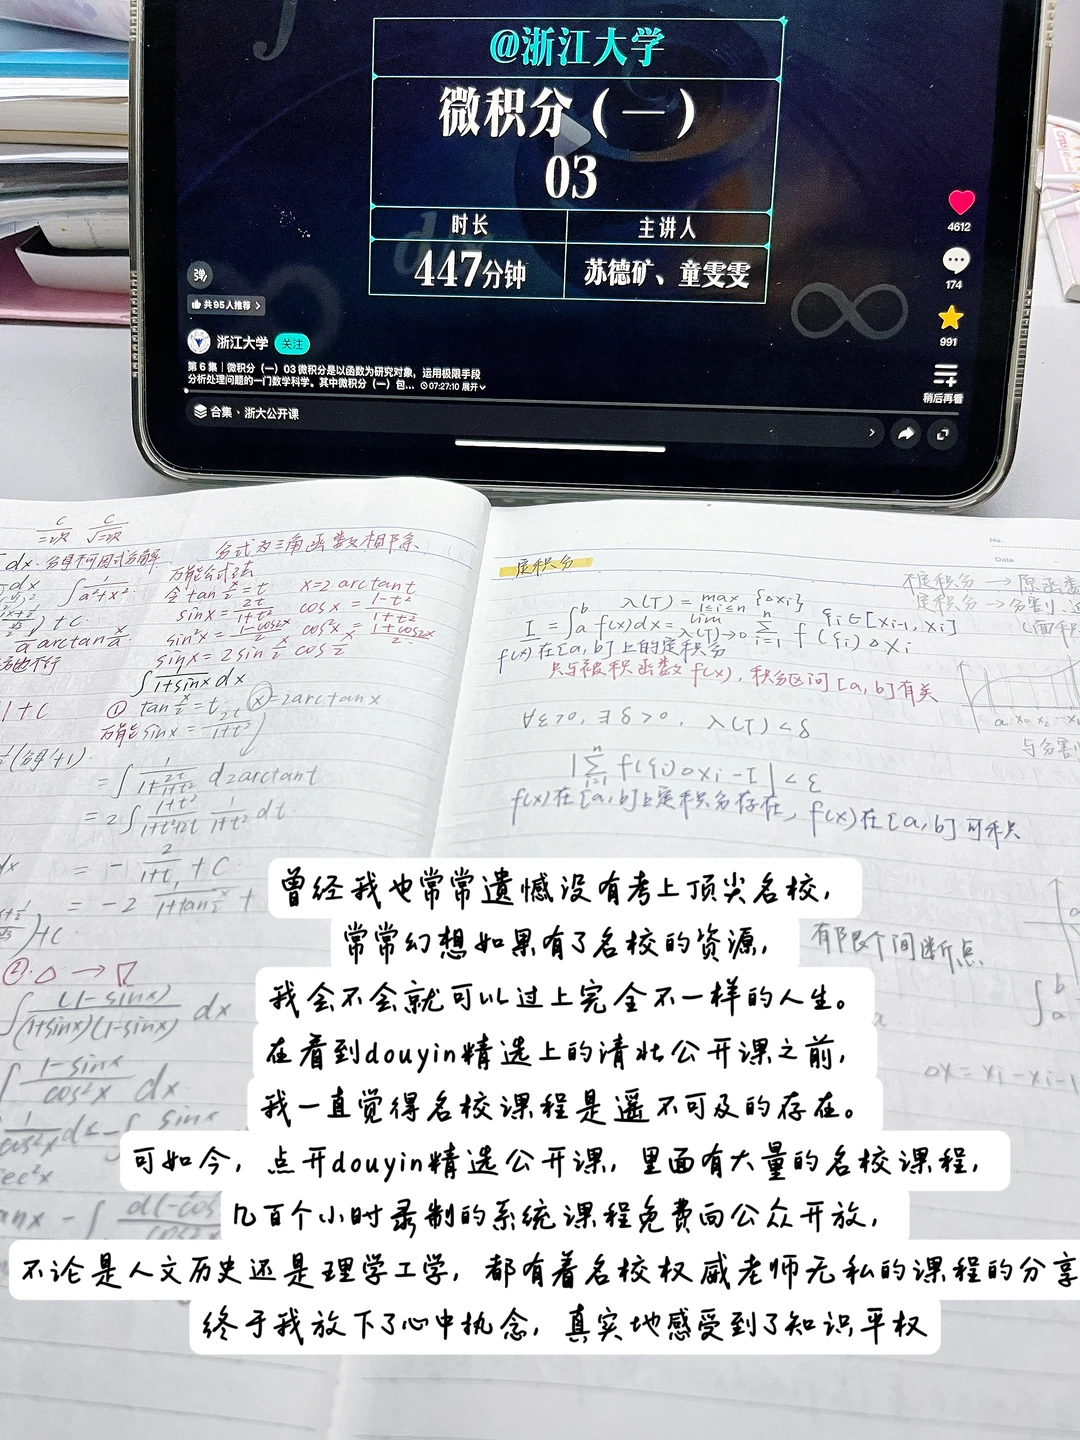 @浙江大学
微积分（一）
03
时长
主讲人
447分钟
苏德矿、童雯雯
4612
弹
174
共95人推荐 >
991
浙江大学 关注
第 6 集｜微积分（一）03 微积分是以函数为研究对象，运用极限手段
分析处理问题的一门数学科学。其中微积分（一）包... 07:27:10 展开
稍后再看
合集 · 浙大公开课
分式为三角函数相除
万能公式法
∫1/(a²+x²)
令tan x/2 = t x=2arctant
sinx = 2t/(1+t²) cosx = (1-t²)/(1+t²)
sin²x = (1-cos2x)/2 cos²x = (1+cos2x)/2
sinx = 2sin x/2 cos x/2
∫1/(1+sinx) dx
① tan x/2 = t, x=2arctanx
万能 sinx = 2t/(1+t²)
= ∫ 1/(1+2t/(1+t²)) d2arctant
= 2∫ (1+t²)/(1+t²+2t) 1/(1+t²) dt
= - 2/(1+t) + C
② △ →
∫ (1-sinx)/((1+sinx)(1-sinx)) dx
∫ (1-sinx)/cos²x dx
No.
Date
定积分
不定积分 → 原函数
定积分 → 分割、近
λ(T) = max {△xi}
1≤i≤n
I = ∫ₐᵇ f(x)dx = lim λ(T)→0 Σ f(ξi)△xi
ξi∈[xi-1, xi]
f(x)在[a,b]上的定积分
只与被积函数f(x), 积分区间[a,b]有关
∀ε>0, ∃δ>0, λ(T)<δ
|Σ f(ξi)△xi - I| < ε
f(x)在[a,b]上定积分存在, f(x)在[a,b]可积
有限个间断点
△x = xi - xi-1
曾经我也常常遗憾没有考上顶尖名校，
常常幻想如果有了名校的资源，
我会不会就可以过上完全不一样的人生。
在看到douyin精选上的清北公开课之前，
我一直觉得名校课程是遥不可及的存在。
可如今，点开douyin精选公开课，里面有大量的名校课程，
几百个小时录制的系统课程免费向公众开放，
不论是人文历史还是理学工学，都有着名校权威老师无私的课程的分享
终于我放下了心中执念，真实地感受到了知识平权